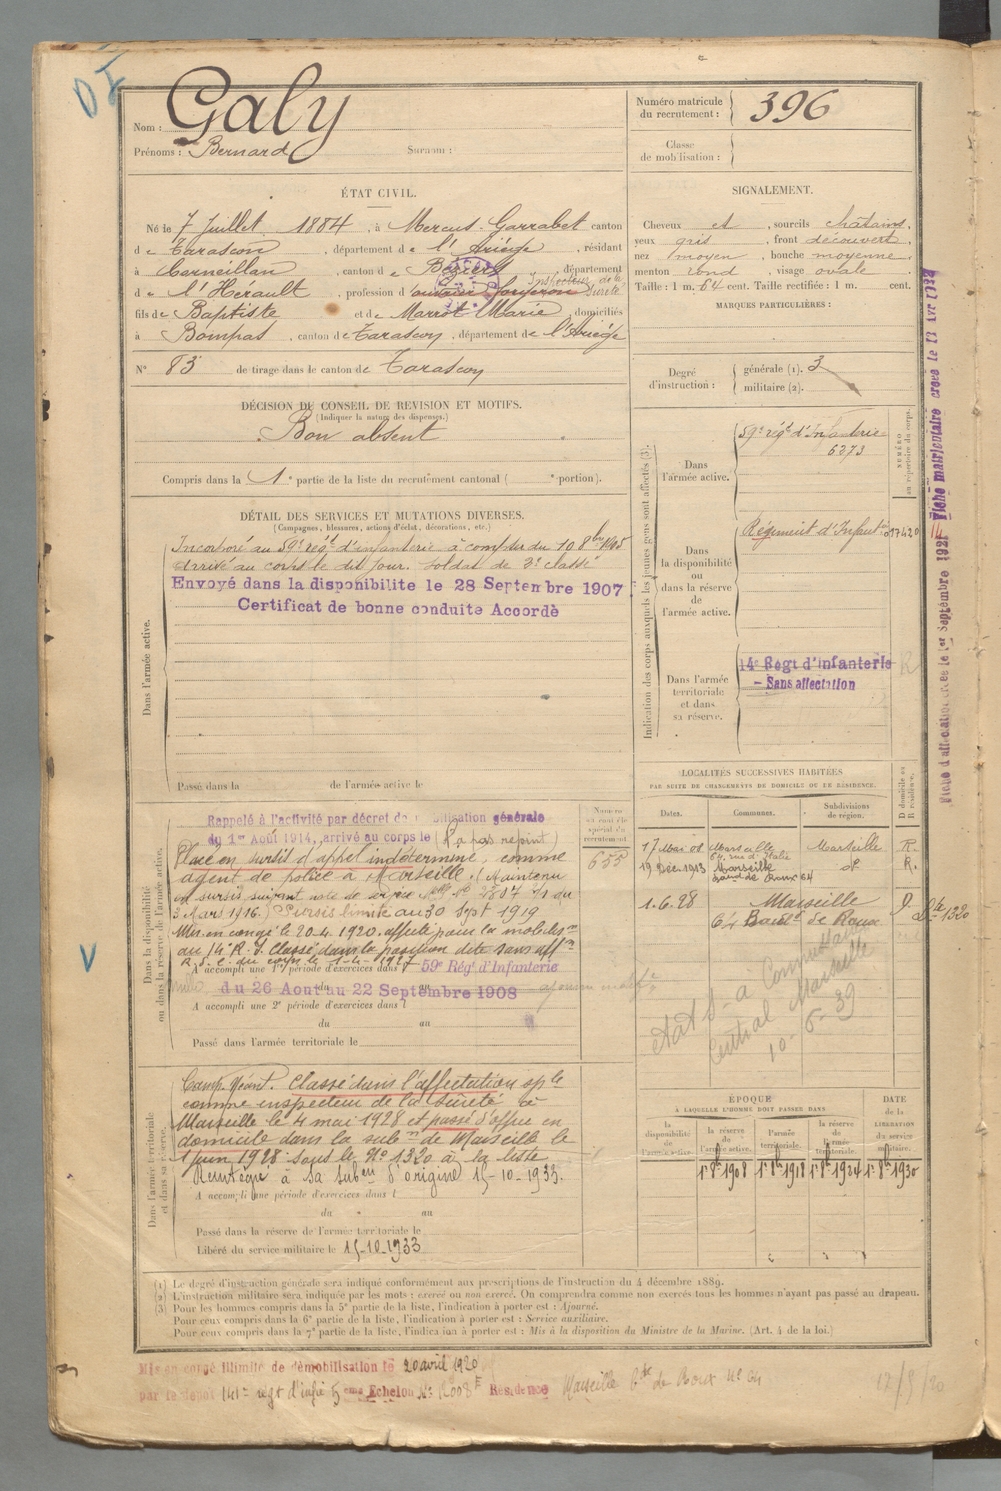 Nom : Galy
Prénoms : Bernard Surnom :
Numéro matricule du recrutement : 396
Classe de mobilisation :
ÉTAT CIVIL.
Né le 7 Juillet 1884, à Mercus-Garrabet canton
de Tarascon, département de l'Ariège, résidant
à Corneillan, canton de Béziers, département
Inspecteur de la Sûreté
de l'Hérault, profession d'ouvrier forgeron
fils de Baptiste et de Marrot Marie, domiciliés
à Bompas, canton de Tarascon, département de l'Ariège
N° 83 de tirage dans le canton de Tarascon
SIGNALEMENT.
Cheveux et, sourcils châtains,
yeux gris, front découvert,
nez moyen, bouche moyenne,
menton rond, visage ovale.
Taille : 1 m. 64 cent. Taille rectifiée : 1 m. cent.
MARQUES PARTICULIÈRES :
Degré d'instruction :
générale (1). 3
militaire (2).
DÉCISION DU CONSEIL DE REVISION ET MOTIFS.
(Indiquer la nature des dispenses.)
Bon absent
Compris dans la 1e partie de la liste du recrutement cantonal ( e portion).
DÉTAIL DES SERVICES ET MUTATIONS DIVERSES.
(Campagnes, blessures, actions d'éclat, décorations, etc.)
Dans l'armée active.
Incorporé au 59e régt d'infanterie à compter du 10 8bre 1905
arrivé au corps le dit jour. soldat de 2e classe
Envoyé dans la disponibilite le 28 Septembre 1907
Certificat de bonne conduite Accordé
Passé dans la de l'armée active le
Indication des corps auxquels les jeunes gens sont affectés (3).
NUMÉRO au répertoire du corps.
Dans l'armée active.
59e régt d'Infanterie
6273
Dans la disponibilité ou dans la réserve de l'armée active.
Régiment d'Infantie 017420
Dans l'armée territoriale et dans sa réserve.
14e Régt d'Infanterie
- Sans affectation
R
Fiche d'affectation créée le 1er Septembre 1921
Fiche matriculaire créée le 13 Avr 1932
LOCALITÉS SUCCESSIVES HABITÉES
PAR SUITE DE CHANGEMENTS DE DOMICILE OU DE RÉSIDENCE.
Dates. Communes. Subdivisions de région. D domicile ou R résidence.
17 Mai 08 Marseille Marseille R.
64, rue d'Italie
19 Déc. 1913 Marseille do R.
Boud de Roux 64
1.6.28 Marseille D
64 Bould de Roux
1320
Commissariat
Central Marseille
10-6-39
Dans la disponibilité ou dans la réserve de l'armée active.
Rappelé à l'activité par décret de mobilisation générale
du 1er Août 1914, arrivé au corps le (N'a pas rejoint)
Placé en sursis d'appel indéterminé, comme
agent de police à Marseille. (Maintenu
en sursis suivant note de service 2807 du
3 Mars 1916.) Sursis limite au 30 Sept 1919
Mis en congé le 20.4.1920. affecté pour la mobilison
au 14e R.I. Classé dans la position dite sans affon
R.S.C. du corps le 1-4-1927
A accompli une 1re période d'exercices dans l 59e Régt d'Infanterie
du 26 Aout au 22 Septembre 1908
A accompli une 2e période d'exercices dans l
du au
Passé dans l'armée territoriale le
Numéro au contrôle spécial du recrutement
655
Dans l'armée territoriale et dans sa réserve.
Camp. Néant. Classé dans l'affectation sple
comme inspecteur de la Sûreté à
Marseille le 4 mai 1928 et passé d'office en
domicile dans la subon de Marseille le
1 juin 1928 sous le N° 1320 à la liste
Réintégré à sa subon d'origine 15-10-1933.
A accompli une période d'exercices dans l
du au
Passé dans la réserve de l'armée territoriale le
Libéré du service militaire le 15-10-1933
ÉPOQUE
À LAQUELLE L'HOMME DOIT PASSER DANS
la disponibilité de l'armée active. la réserve de l'armée active. l'armée territoriale. la réserve de l'armée territoriale.
DATE de la LIBÉRATION du service militaire.
1er 8bre 1908 1er 8bre 1918 1er 8bre 1924 1er 8bre 1930
(1) Le degré d'instruction générale sera indiqué conformément aux prescriptions de l'instruction du 4 décembre 1889.
(2) L'instruction militaire sera indiquée par les mots : exercé ou non exercé. On comprendra comme non exercés tous les hommes n'ayant pas passé au drapeau.
(3) Pour les hommes compris dans la 5e partie de la liste, l'indication à porter est : Ajourné.
Pour ceux compris dans la 6e partie de la liste, l'indication à porter est : Service auxiliaire.
Pour ceux compris dans la 7e partie de la liste, l'indication à porter est : Mis à la disposition du Ministre de la Marine. (Art. 4 de la loi.)
Mis en congé illimité de démobilisation le 20 avril 1920
par le dépôt 141e regt d'infie 5eme Echelon N° R008E Résidence Marseille Bde de Roux N° 64